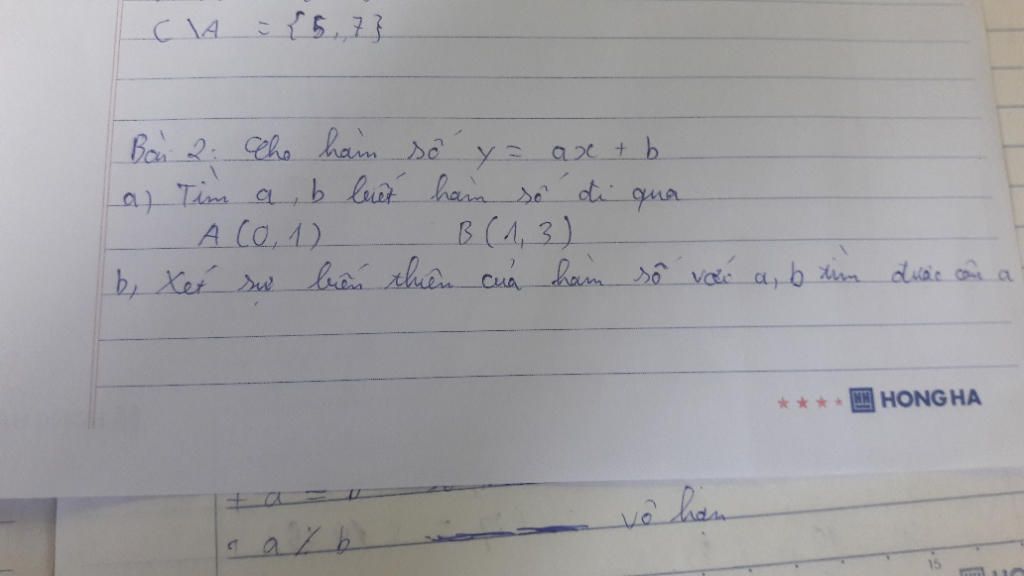 C \ A = {5, 7}
Bài 2: Cho hàm số y = ax + b
a) Tìm a, b biết hàm số đi qua
A (0, 1) B (1, 3)
b, Xét sự biến thiên của hàm số với a, b tìm được câu a
HONG HA
+ a =
a / b vô hạn
15
HO